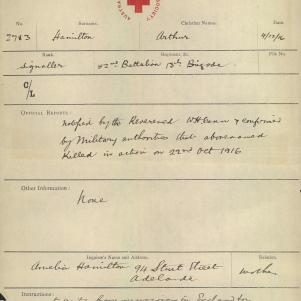 No. Surname. Christian Name. Date.
2783 Hamilton Arthur 4/12/16
Rank. Regiment, &c. File No.
Signaller 52nd Battalion 13th Brigade
C/L
OFFICIAL REPORTS:
notified by the Reverend & confirmed
by Military authorities that abovenamed
Killed in action on 22nd Oct 1916
Other Information:
None
Inquirer's Name and Address. Relation.
Amelia Hamilton 94 Sturt Street mother
Adelaide
Instructions: